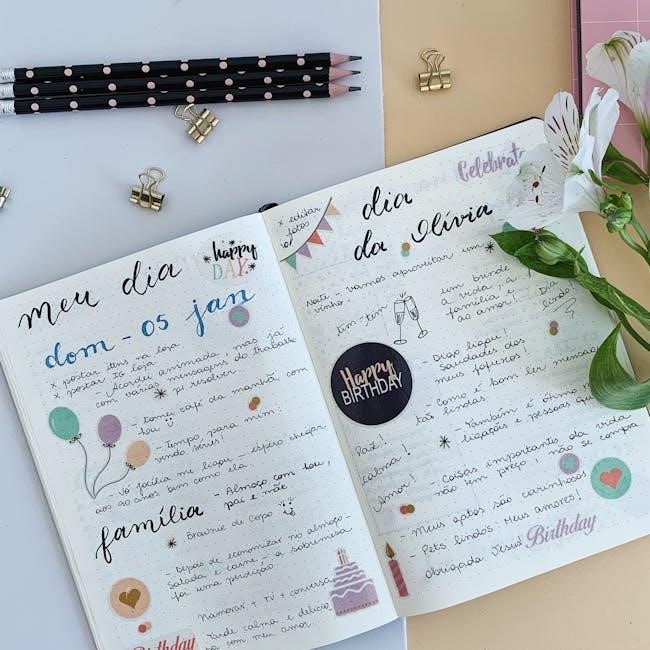 meu dia
happy
DAY
dom - 05 jan
x postar itens na loja
x postar IG loja
- Acordei animada, mas já
com várias mensagens do trabalho
p/ resolver.
- tomei café da manhã com
tou
- Tempo para mim:
vendo séries!
- Vó Jacília me ligou - espero chegar
aos 90 anos bem como ela
família - Almoço com tou,
pai e mãe.
Brownie de Copo
- Depois de economizar no almoço -
salada e carne, a sobremesa
foi uma perdição.
Namorar + TV + conversa
Tarde calma e delicio
sa com meu amor.
Birthday
x editar
fotos
Celebrate
dia
da Olívia
Noite - vamos aproveitar um
vinho.
tim-tim
um brinde
à vida, à
família e
ao amor!
Dia
lindo!
Happy
BIRTHDAY
- Diogo ligou!
saudades dos
meus fofuros!
- Como é bom ler mensagens
tão lindas.
- Também é ótimo
ligações e pessoas que
Paz!
calma!
Amor!
- Coisas importantes da vida
não tem preço, não se compra.
- Meus gatos são carinhosos
- Pets lindos: Meus amores!
Obrigada Jesus
Birthday